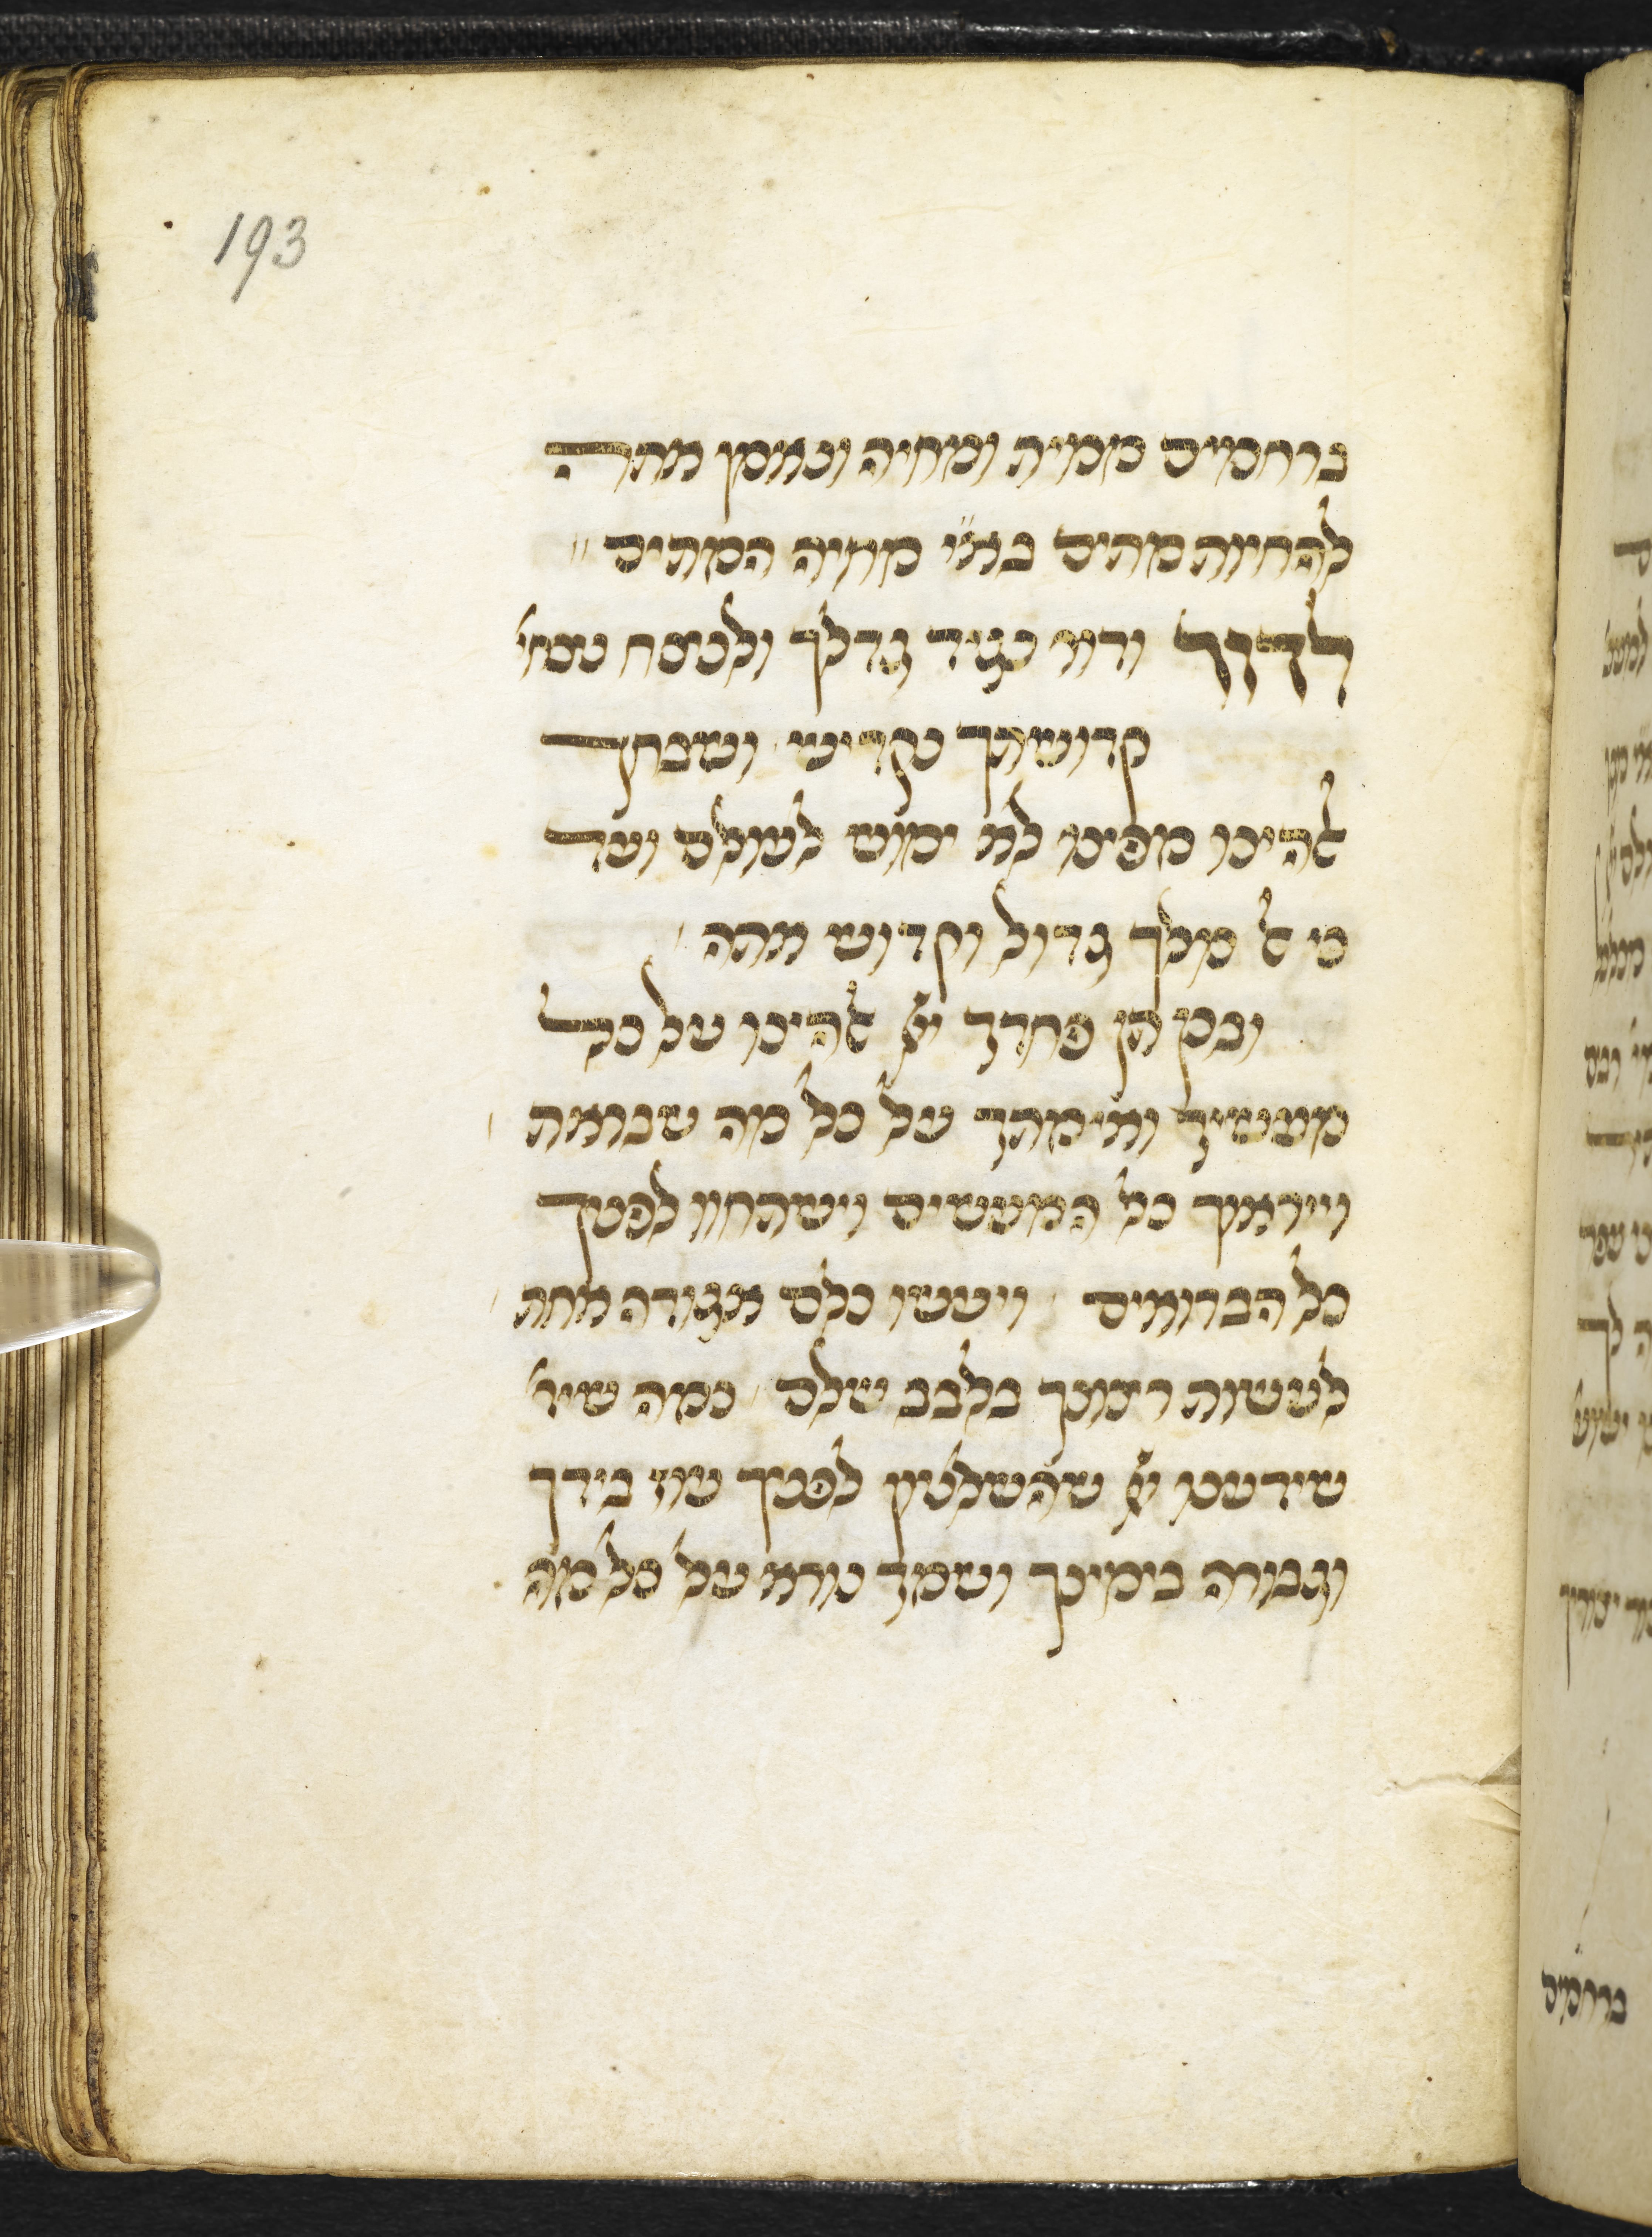 193
ברחמים ממית ומחיה ונאמן אתה
להחיות מתים בא״י מחיה המתים
לדור ודור נגיד גדלך ולנצח נצחי׳
קדושתך נקדיש ושבחך
אלהינו מפינו לא ימוש לעולם ועד
כי אל מלך גדול וקדוש אתה
ובכן תן פחדך יי׳ אלהינו על כל
מעשיך ואימתך על כל מה שבראת
וייראוך כל המעשים וישתחוו לפניך
כל הברואים ויעשו כלם אגודה אחת
לעשות רצונך בלבב שלם כמה שיד׳
שידענו יי׳ שהשלטון לפניך עוז בידך
וגבורה בימינך ושמך נורא על כל מה
ברחמים